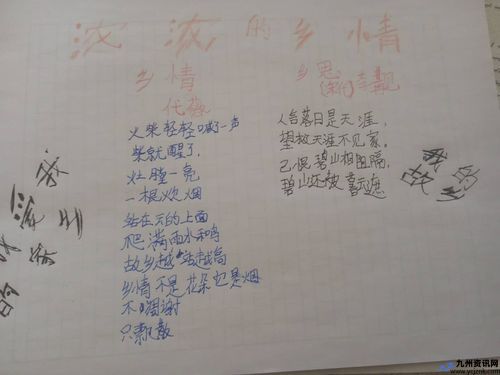 浓浓的乡情
乡情
代薇
火柴轻轻喊一声
柴就醒了,
灶膛一亮
一根炊烟
站在天的上面
爬满雨水和鸣
故乡越站越高
乡情不是花朵它是烟
不凋谢
只飘散
乡思
(宋代)李覯
人台落日是天涯,
望极天涯不见家,
己恨碧山相阻隔,
碧山还被暮云遮
我的
故乡
我
爱
九州资讯网
www.ycjznk.com